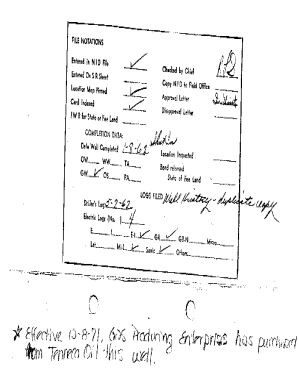 FILE NOTATIONS
Entered in NID File ✓
Entered On S R Sheet
Location Map Pinned ✓
Card Indexed ✓
I W R for State or Fee Land
Checked by Chief
Copy NID to Field Office
Approval Letter
Disapproval Letter
COMPLETION DATA:
Date Well Completed 1-8-62
OW WW TA
GW ✓ OS PA
Location Inspected
Bond released
State of Fee Land
LOGS FILED Well History - duplicate copy
Driller's Log 5-7-62
Electric Logs (No.) 4
E I E-I ✓ GR ✓ GR-N Micro
Lat Mi-L ✓ Sonic ✓ Others
* Effective 10-8-71, Producing Enterprises has purchased
from Tenneco Oil this well.